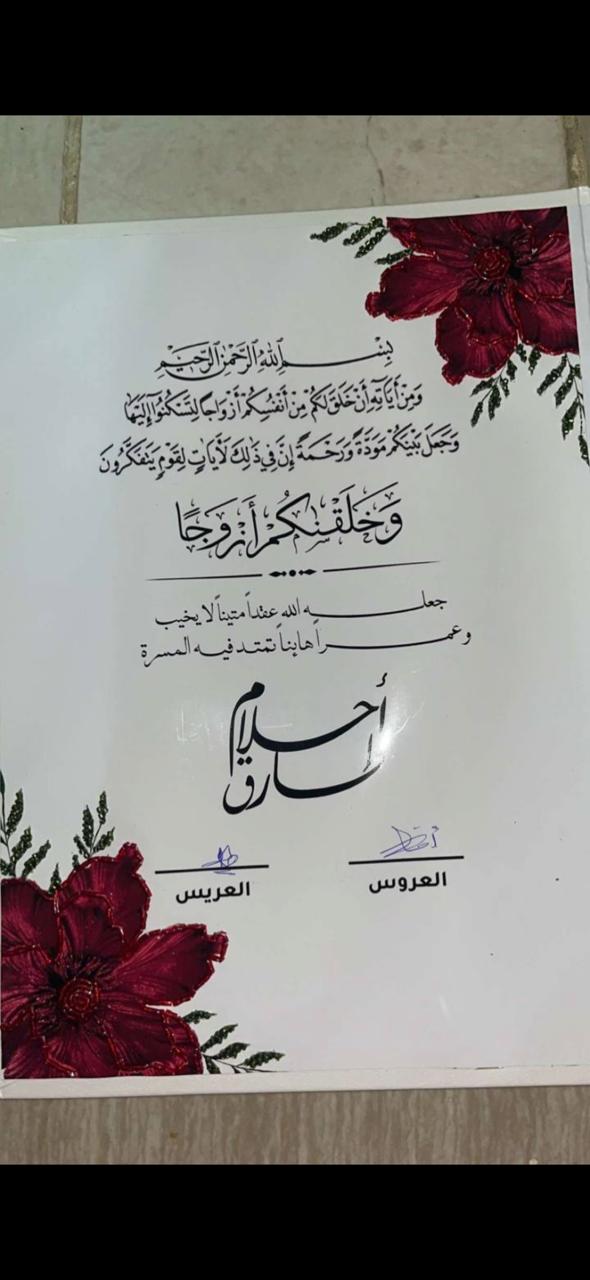 بِسْمِ اللهِ الرَّحْمٰنِ الرَّحِيْمِ
وَمِنْ أَيَاتِهِ أَنْ خَلَقَ لَكُمْ مِنْ أَنْفُسِكُمْ أَزْوَاجًا لِتَسْكُنُوا إِلَيْهَا
وَجَعَلَ بَيْنَكُمْ مَوَدَّةً وَرَحْمَةً إِنَّ فِي ذَلِكَ لَأَيَاتٍ لِقَوْمٍ يَتَفَكَّرُونَ
وَخَلَقْنٰكُمْ أَزْوَجًا
جعله الله عقداً متيناً لا يخيب
وعمراً هانئاً تمتد فيه المسرة
أحلام
طارق
العروس
العريس